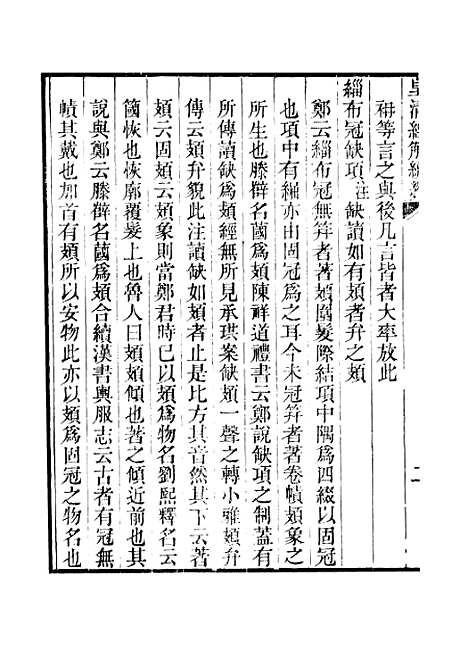 皇清經解續
科等言之與後凡言皆者大率放此
緇布冠缺項注缺讀如有頍者弁之頍
鄭云緇布冠無笄者著頍圍髮際結項中隅爲四綴以固冠
也項中有𦇚亦由固冠爲之耳今未冠笄者著卷幘頍象之
所生也滕薛名蔮爲頍陳祥道禮書云鄭說缺項之制蓋有
所傳讀缺爲頍經無所見承珙案缺頍一聲之轉小雅頍弁
傳云頍弁貌此注讀缺如頍者止是比方其音然其下云著
頍云固頍云頍象則當鄭君時已以頍爲物名劉熙釋名云
簂恢也恢廓覆髮上也魯人曰頍頍傾也著之傾近前也其
說與鄭云滕薛名蔮爲頍合續漢書輿服志云古者有冠無
幘其戴也加首有頍所以安物此亦以頍爲固冠之物名也
二